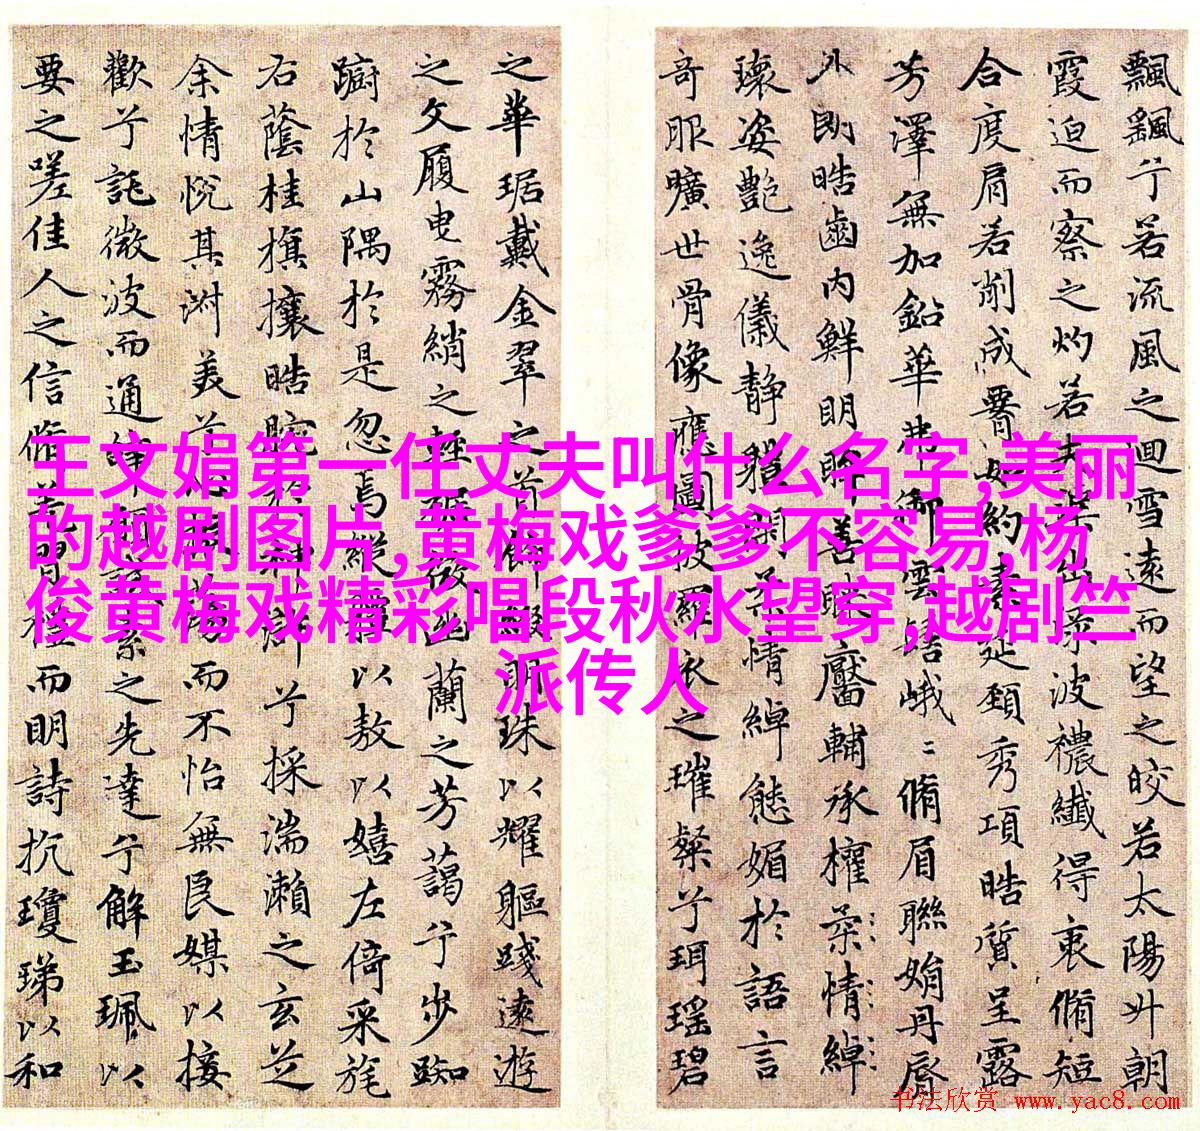 飄飖兮若流風之迴雪遠而望之皎若太陽升朝
霞迫而察之灼若夫渠出淥波襛纖得衷脩短
合度肩若削成要如約素延頸秀項皓質呈露
芳澤無加鉛華弗御雲髻峨〻脩眉聯娟丹脣
外朗皓齒內鮮明眸善睞靨輔承權柔情綽
瓌姿艷逸儀靜體閑柔情綽態媚於語言
奇服曠世骨像應圖披羅衣之璀粲兮珥瑤碧
之華琚戴金翠之首飾綴明珠以耀軀踐遠遊
之文履曳霧綃之輕裾微幽蘭之芳藹兮步踟
躕於山隅於是忽焉縱體以敖以嬉左倚采旄
右蔭桂旗攘皓腕於神滸兮採湍瀨之玄芝
余情悅其淑美兮心振蕩而不怡無良媒以接
歡兮託微波而通辭素之先達兮解玉珮以
要之嗟佳人之信脩羌習禮而明詩抗瓊珶以和
王文娟第一任丈夫叫什么名字,美丽
的越剧图片,黄梅戏爹爹不容易,杨
俊黄梅戏精彩唱段秋水望穿,越剧竺
派传人
书法欣赏 www.yac8.com